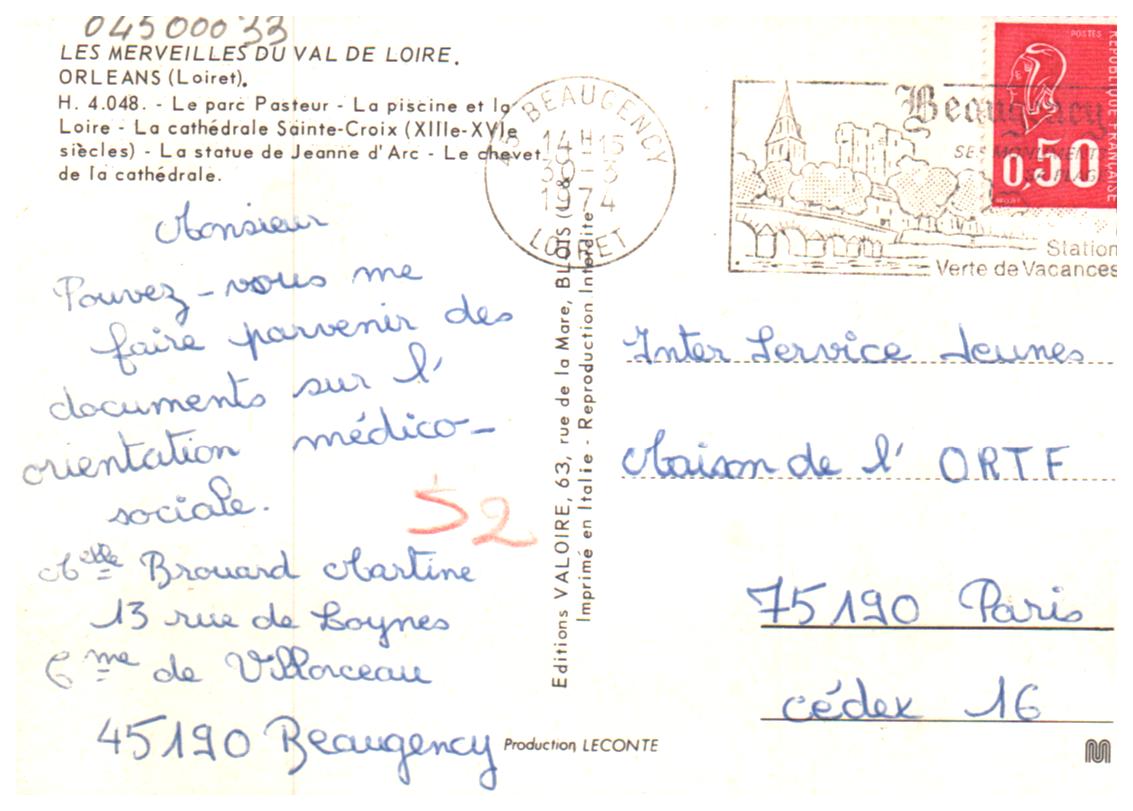 04500033
LES MERVEILLES DU VAL DE LOIRE.
ORLEANS (Loiret).
H. 4.048. - Le parc Pasteur - La piscine et la
Loire - La cathédrale Sainte-Croix (XIIIe-XVIe
siècles) - La statue de Jeanne d'Arc - Le chevet
de la cathédrale.
Monsieur
Pouvez-vous me
faire parvenir des
documents sur l'
orientation médico-
sociale.
Melle Brouard Martine
13 rue de Loynes
Cme de Villorceau
45190 Beaugency
52
Production LECONTE
Editions VALOIRE, 63, rue de la Mare, BLOIS (L. &
Imprimé en Italie - Reproduction Interdite
45 BEAUGENCY
14 H 15
-3
1974
LOIRET
Beaugency
SES MONUMENTS
SA PLAGE
Station
Verte de Vacances
POSTES
REPUBLIQUE FRANÇAISE
0,50
Inter Service Jeunes
Maison de l' ORTF
75190 Paris
cédex 16